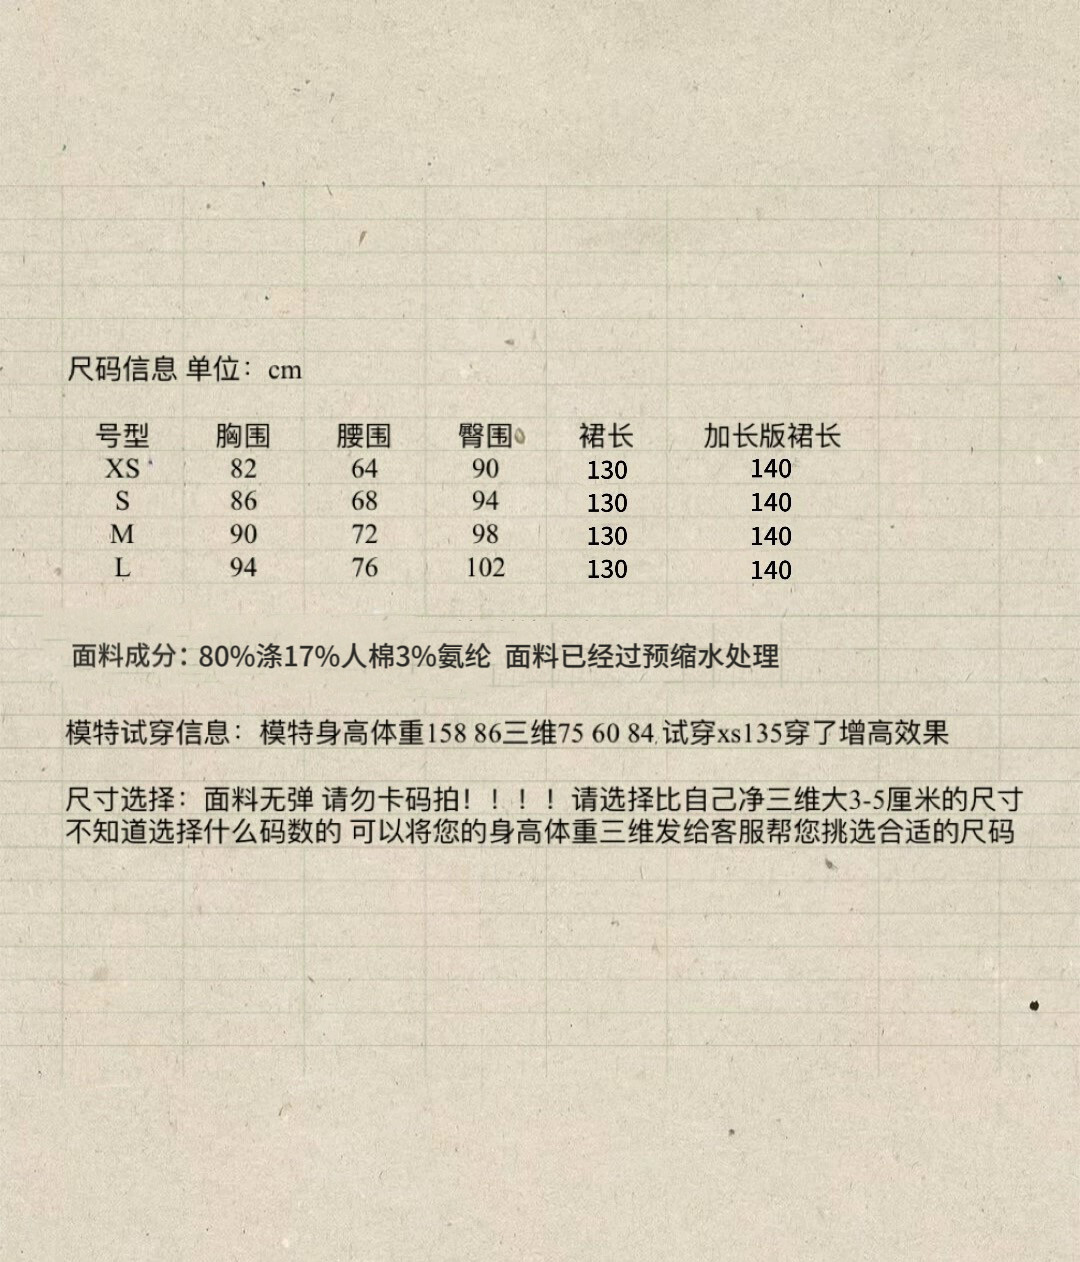 尺码信息 单位：cm
号型 胸围 腰围 臀围 裙长 加长版裙长
XS 82 64 90 130 140
S 86 68 94 130 140
M 90 72 98 130 140
L 94 76 102 130 140
面料成分：80%涤17%人棉3%氨纶 面料已经过预缩水处理
模特试穿信息：模特身高体重158 86三维75 60 84 试穿xs135穿了增高效果
尺寸选择：面料无弹 请勿卡码拍！！！！请选择比自己净三维大3-5厘米的尺寸
不知道选择什么码数的 可以将您的身高体重三维发给客服帮您挑选合适的尺码